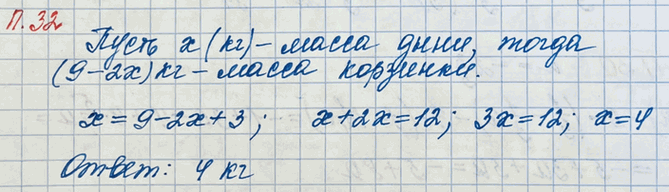 П. 32
Пусть x (кг) – масса дыни, тогда
(9–2x) кг – масса корзинки.
x = 9–2x+3; x+2x=12; 3x=12; x=4
Ответ: 4 кг